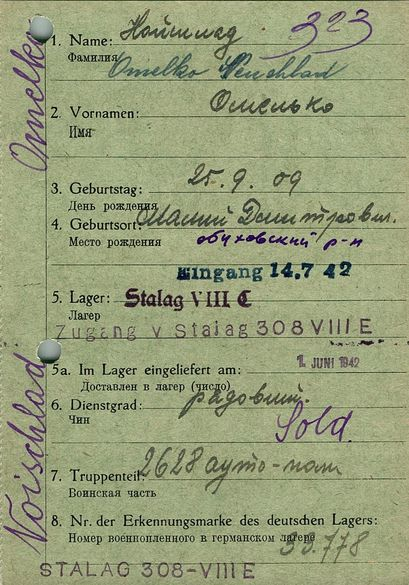 323
1. Name: Нойшлад
Фамилия
Omelko Neuchlad
2. Vornamen: Омелько
Имя
3. Geburtstag: 25.9.09
День рождения
4. Geburtsort: Малий Дмитрович.
Место рождения обуховский р-н
Eingang 14.7 42
5. Lager: Stalag VIII C
Лагер
Zugang v Stalag 308 VIII E
5a. Im Lager eingeliefert am: 1. JUNI 1942
Доставлен в лагер (число)
6. Dienstgrad: рядовий.
Чин Sold.
7. Truppenteil: 2628 ауто-полк
Воинская часть
8. Nr. der Erkennungsmarke des deutschen Lagers:
Номер военнопленного в германском лагере
53.778
STALAG 308-VIII E
Omelko
Noischlad